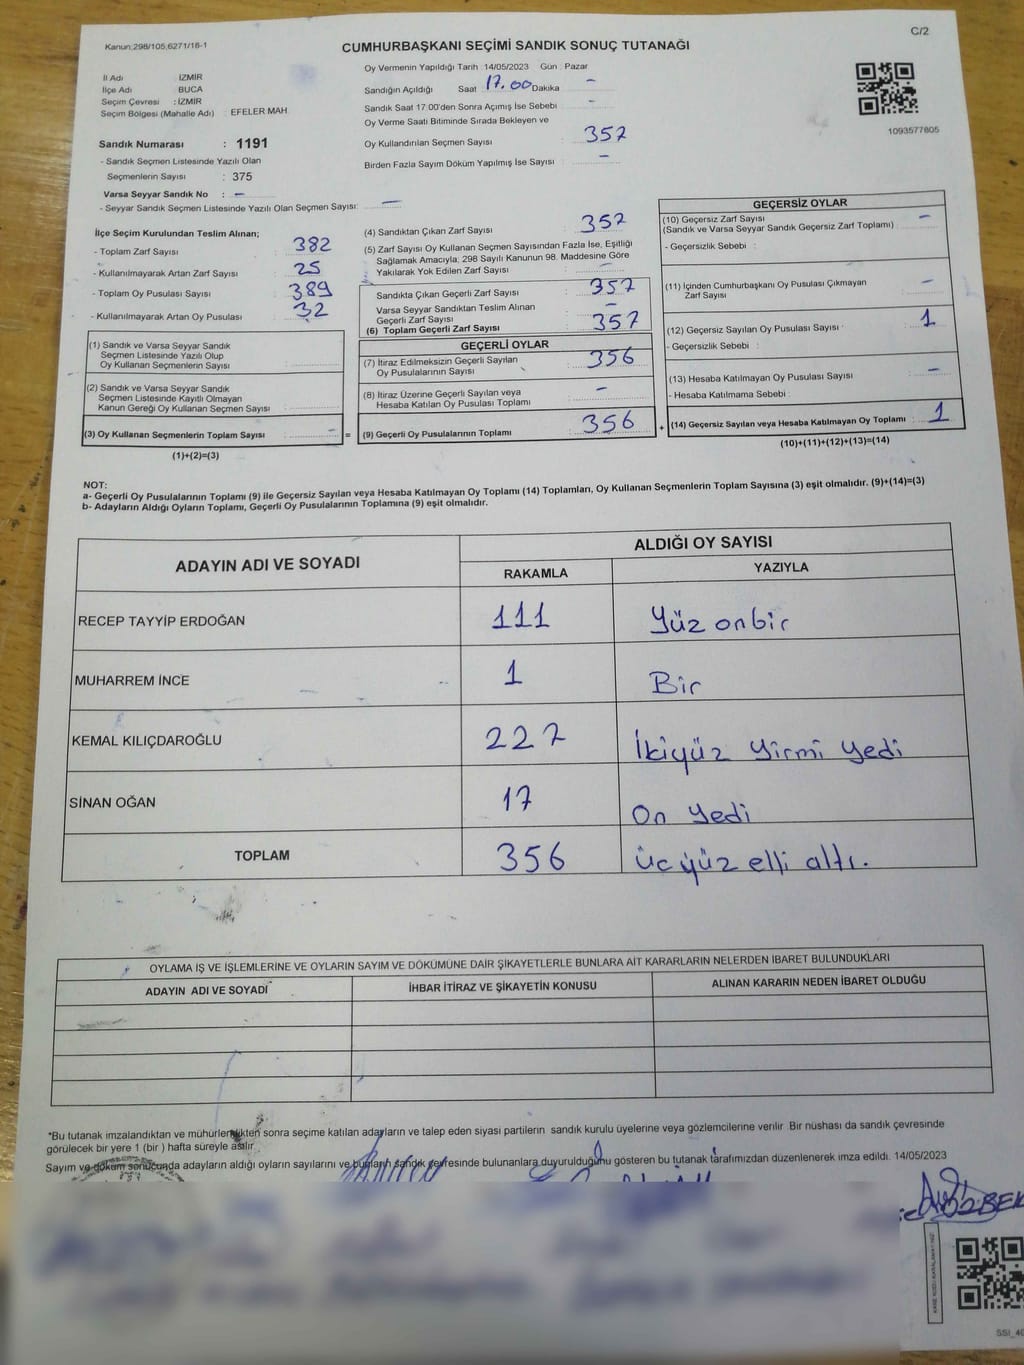 Kanun;298/105,6271/16-1
C/2
CUMHURBAŞKANI SEÇİMİ SANDIK SONUÇ TUTANAĞI
İl Adı İZMİR
İlçe Adı BUCA
Seçim Çevresi : İZMİR
Seçim Bölgesi (Mahalle Adı) : EFELER MAH.
Sandık Numarası : 1191
- Sandık Seçmen Listesinde Yazılı Olan
Seçmenlerin Sayısı : 375
Varsa Seyyar Sandık No : -
- Seyyar Sandık Seçmen Listesinde Yazılı Olan Seçmen Sayısı: -
Oy Vermenin Yapıldığı Tarih :14/05/2023 Gün : Pazar
Sandığın Açıldığı Saat 17.00 Dakika -
Sandık Saat 17.00'den Sonra Açımış İse Sebebi : -
Oy Verme Saati Bitiminde Sırada Bekleyen ve
Oy Kullandırılan Seçmen Sayısı : 357
Birden Fazla Sayım Döküm Yapılmış İse Sayısı : -
1093577805
İlçe Seçim Kurulundan Teslim Alınan;
- Toplam Zarf Sayısı : 382
- Kullanılmayarak Artan Zarf Sayısı : 25
- Toplam Oy Pusulası Sayısı : 389
- Kullanılmayarak Artan Oy Pusulası : 32
(1) Sandık ve Varsa Seyyar Sandık
Seçmen Listesinde Yazılı Olup
Oy Kullanan Seçmenlerin Sayısı :
(2) Sandık ve Varsa Seyyar Sandık
Seçmen Listesinde Kayıtlı Olmayan
Kanun Gereği Oy Kullanan Seçmen Sayısı :
(3) Oy Kullanan Seçmenlerin Toplam Sayısı : - =
(1)+(2)=(3)
(4) Sandıktan Çıkan Zarf Sayısı : 357
(5) Zarf Sayısı Oy Kullanan Seçmen Sayısından Fazla İse, Eşitliği
Sağlamak Amacıyla; 298 Sayılı Kanunun 98. Maddesine Göre
Yakılarak Yok Edilen Zarf Sayısı : -
Sandıkta Çıkan Geçerli Zarf Sayısı : 357
Varsa Seyyar Sandıktan Teslim Alınan
Geçerli Zarf Sayısı : -
(6) Toplam Geçerli Zarf Sayısı : 357
GEÇERLİ OYLAR
(7) İtiraz Edilmeksizin Geçerli Sayılan
Oy Pusulalarının Sayısı : 356
(8) İtiraz Üzerine Geçerli Sayılan veya
Hesaba Katılan Oy Pusulası Toplamı : -
(9) Geçerli Oy Pusulalarının Toplamı : 356 +
GEÇERSİZ OYLAR
(10) Geçersiz Zarf Sayısı
(Sandık ve Varsa Seyyar Sandık Geçersiz Zarf Toplamı) : -
- Geçersizlik Sebebi :
(11) İçinden Cumhurbaşkanı Oy Pusulası Çıkmayan
Zarf Sayısı : -
(12) Geçersiz Sayılan Oy Pusulası Sayısı : 1
- Geçersizlik Sebebi :
(13) Hesaba Katılmayan Oy Pusulası Sayısı : -
- Hesaba Katılmama Sebebi :
(14) Geçersiz Sayılan veya Hesaba Katılmayan Oy Toplamı : 1
(10)+(11)+(12)+(13)=(14)
NOT:
a- Geçerli Oy Pusulalarının Toplamı (9) ile Geçersiz Sayılan veya Hesaba Katılmayan Oy Toplamı (14) Toplamları, Oy Kullanan Seçmenlerin Toplam Sayısına (3) eşit olmalıdır. (9)+(14)=(3)
b- Adayların Aldığı Oyların Toplamı, Geçerli Oy Pusulalarının Toplamına (9) eşit olmalıdır.
ADAYIN ADI VE SOYADI ALDIĞI OY SAYISI
RAKAMLA YAZIYLA
RECEP TAYYİP ERDOĞAN 111 Yüz onbir
MUHARREM İNCE 1 Bir
KEMAL KILIÇDAROĞLU 227 İkiyüz yirmi yedi
SİNAN OĞAN 17 On yedi
TOPLAM 356 üçyüz elli altı.
OYLAMA İŞ VE İŞLEMLERİNE VE OYLARIN SAYIM VE DÖKÜMÜNE DAİR ŞİKAYETLERLE BUNLARA AİT KARARLARIN NELERDEN İBARET BULUNDUKLARI
ADAYIN ADI VE SOYADI İHBAR İTİRAZ VE ŞİKAYETİN KONUSU ALINAN KARARIN NEDEN İBARET OLDUĞU
*Bu tutanak imzalandıktan ve mühürlendikten sonra seçime katılan adayların ve talep eden siyasi partilerin sandık kurulu üyelerine veya gözlemcilerine verilir. Bir nüshası da sandık çevresinde
görülecek bir yere 1 (bir ) hafta süreyle asılır.
Sayım ve döküm sonucunda adayların aldığı oyların sayılarını ve bunların sandık çevresinde bulunanlara duyurulduğunu gösteren bu tutanak tarafımızdan düzenlenerek imza edildi. 14/05/2023